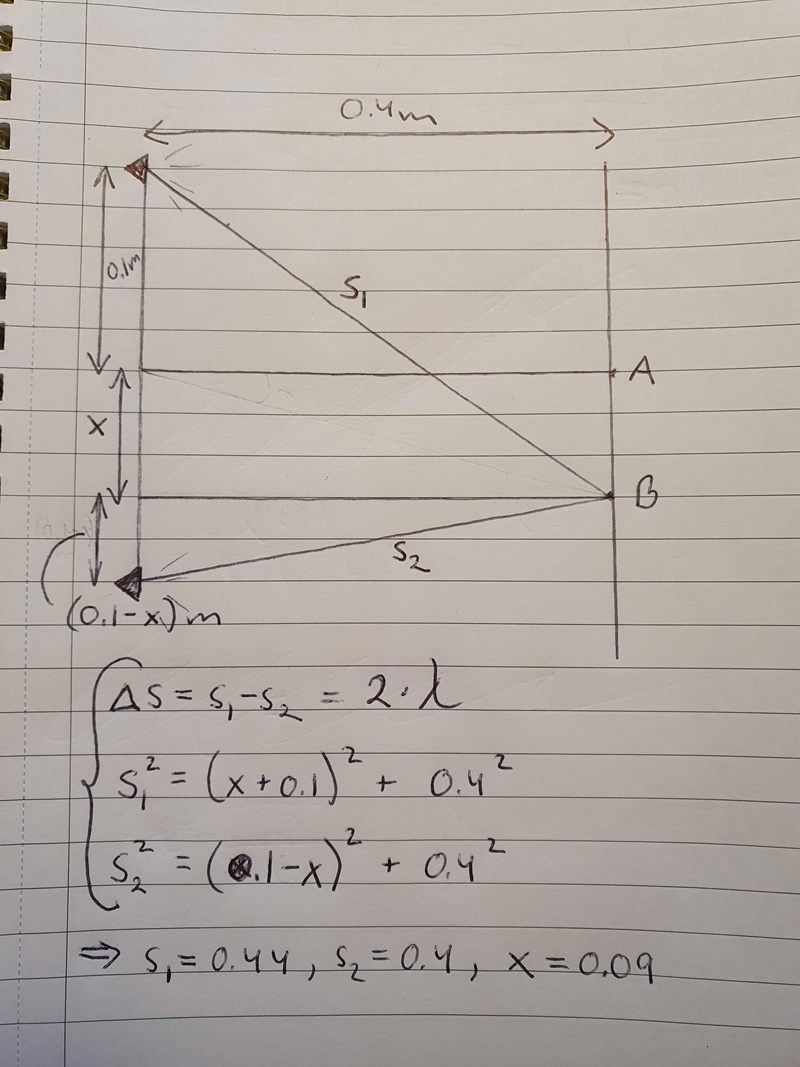 0.4m
0.1m
S₁
A
x
B
S₂
(0.1-x)m
ΔS = S₁-S₂ = 2·λ
S₁² = (x+0.1)² + 0.4²
S₂² = (0.1-x)² + 0.4²
⇒ S₁=0.44, S₂=0.4, x=0.09